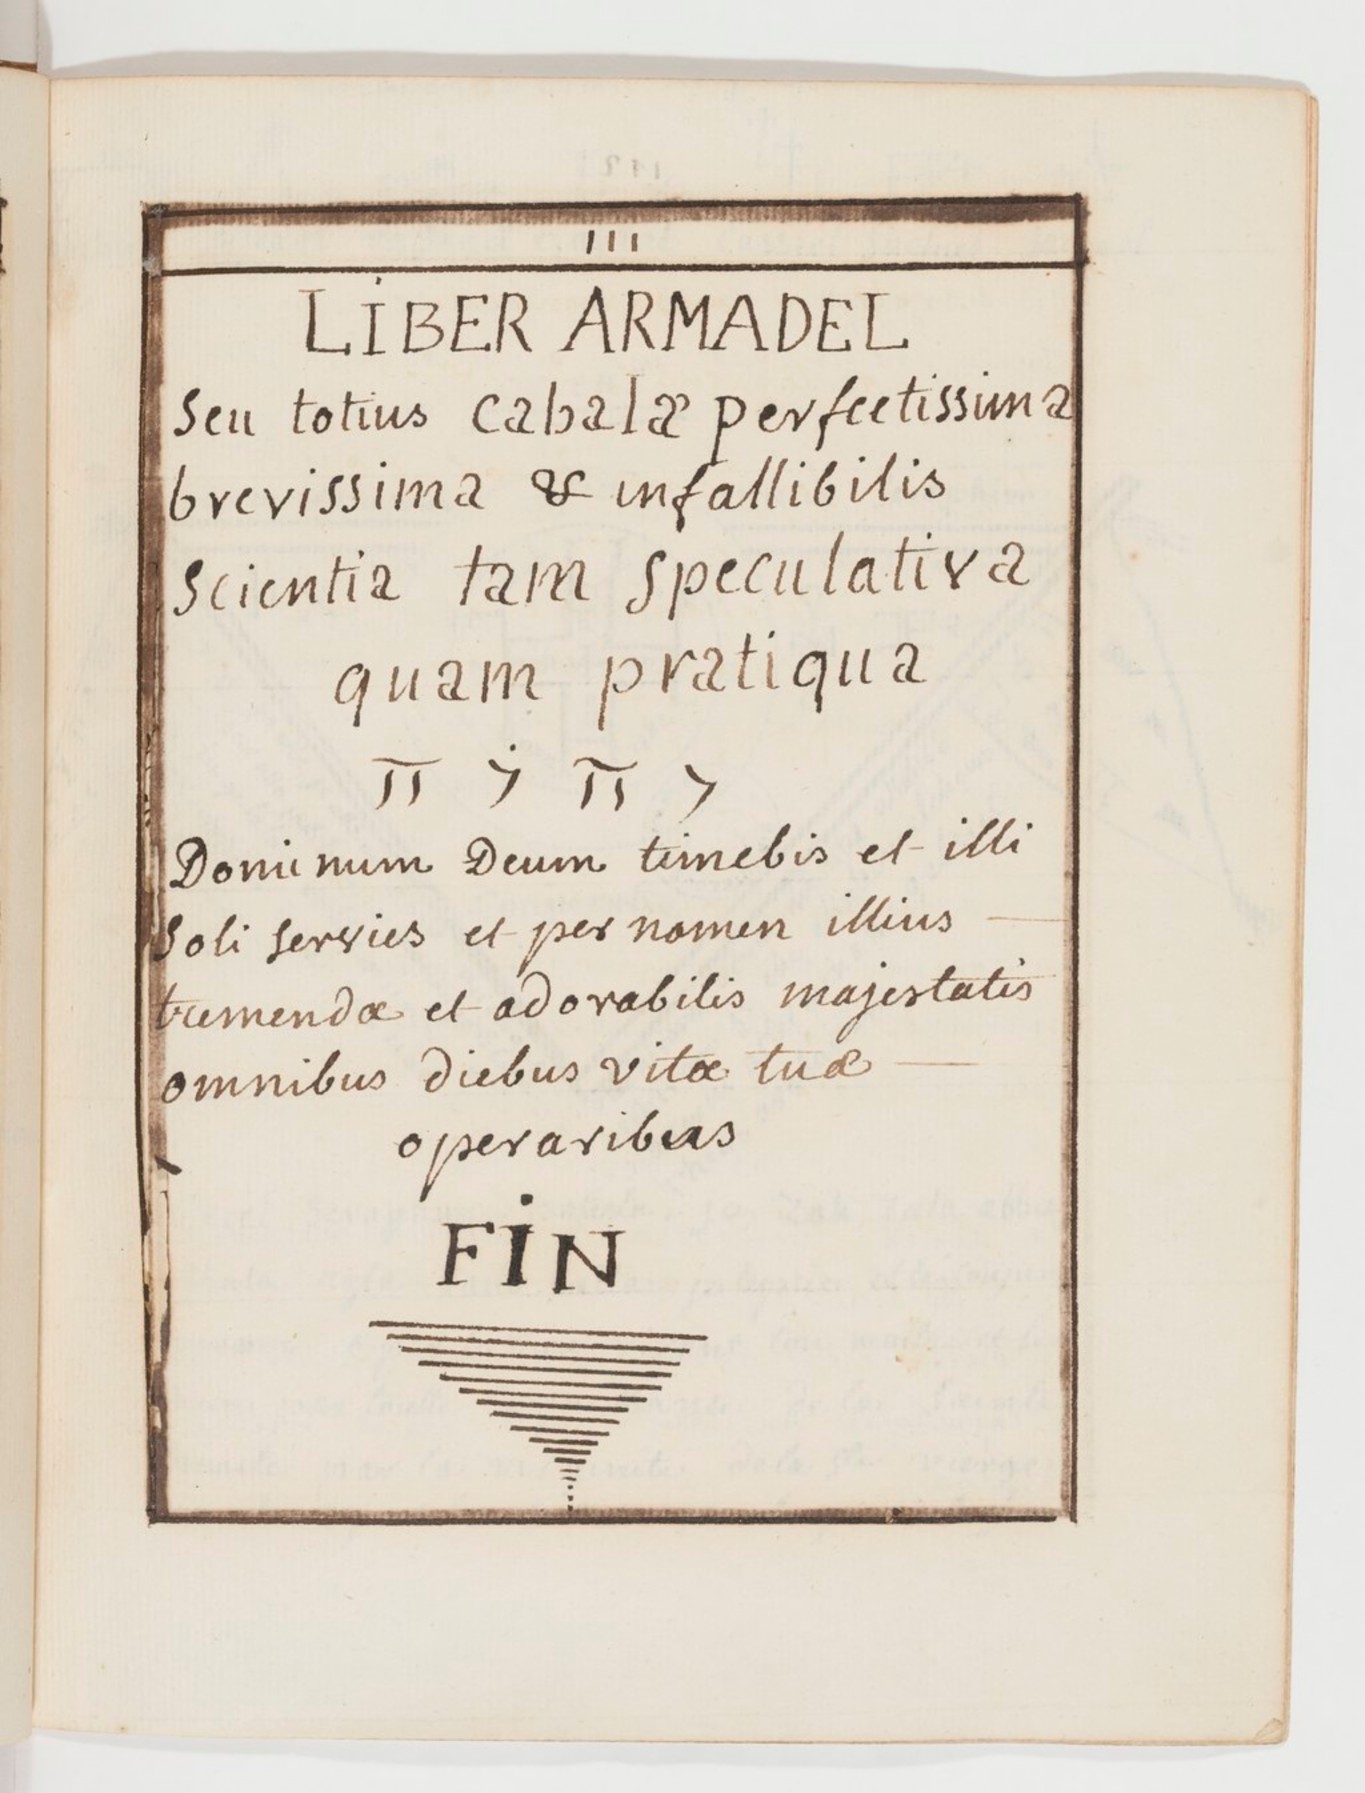 111
LIBER ARMADEL
Seu totius cabalæ perfectissima
brevissima & infallibilis
Scientia tam speculativa
quam pratiqua
Dominum Deum timebis et illi
Soli servies et per nomen illius
tremendæ et adorabilis majestatis
omnibus diebus vitæ tuæ
operaribus
FIN